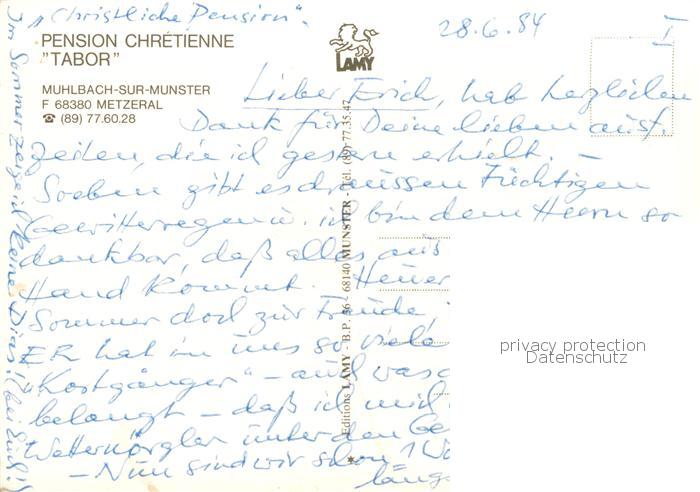 "Christliche Pension".
28.6.84
I
PENSION CHRÉTIENNE
"TABOR"
LAMY
MUHLBACH-SUR-MUNSTER
F 68380 METZERAL
☎ (89) 77.60.28
Lieber Erich, hab herzlichen
Dank für Deine lieben ausf.
Zeilen, die ich gestern erhielt. –
Soeben gibt es draussen tüchtigen
Gewitterregen u. ich bin dem Herrn so
dankbar, daß alles aus
Hand kommt. Heuer
Sommer doch zur Freude,
ER hat ja uns so viele
"Kostgänger" – auch was
belangt – daß ich mich
Wetternörgler unter den
– Nun sind wir schon 1 Wo
länge
Im Sommer zeige ich keine Dias! (bei Euch!)
Editions LAMY - B.P. 36 - 68140 MUNSTER - Tél. (89) 77.35.47
privacy protection
Datenschutz